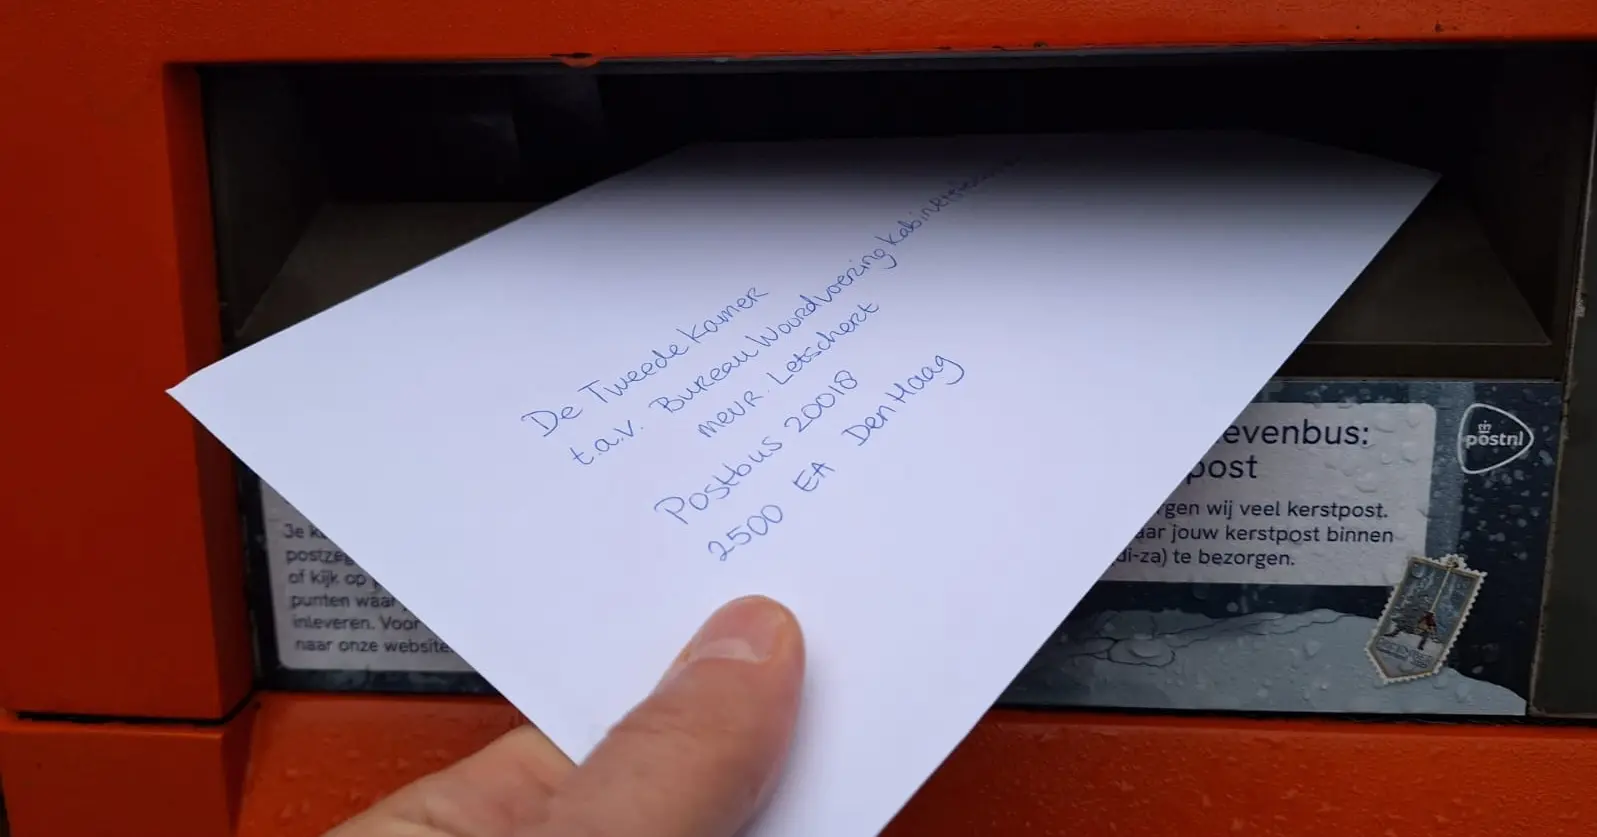 De Tweede Kamer
t.a.v. Bureau Woordvoering Kabinetsformatie
mevr. Letschert
Postbus 20018
2500 EA Den Haag
evenbus:
post
gen wij veel kerstpost.
aar jouw kerstpost binnen
(di-za) te bezorgen.
postnl
Je k
postze
of kijk op
punten waar
inleveren. Voor
naar onze website.
DECEMBER